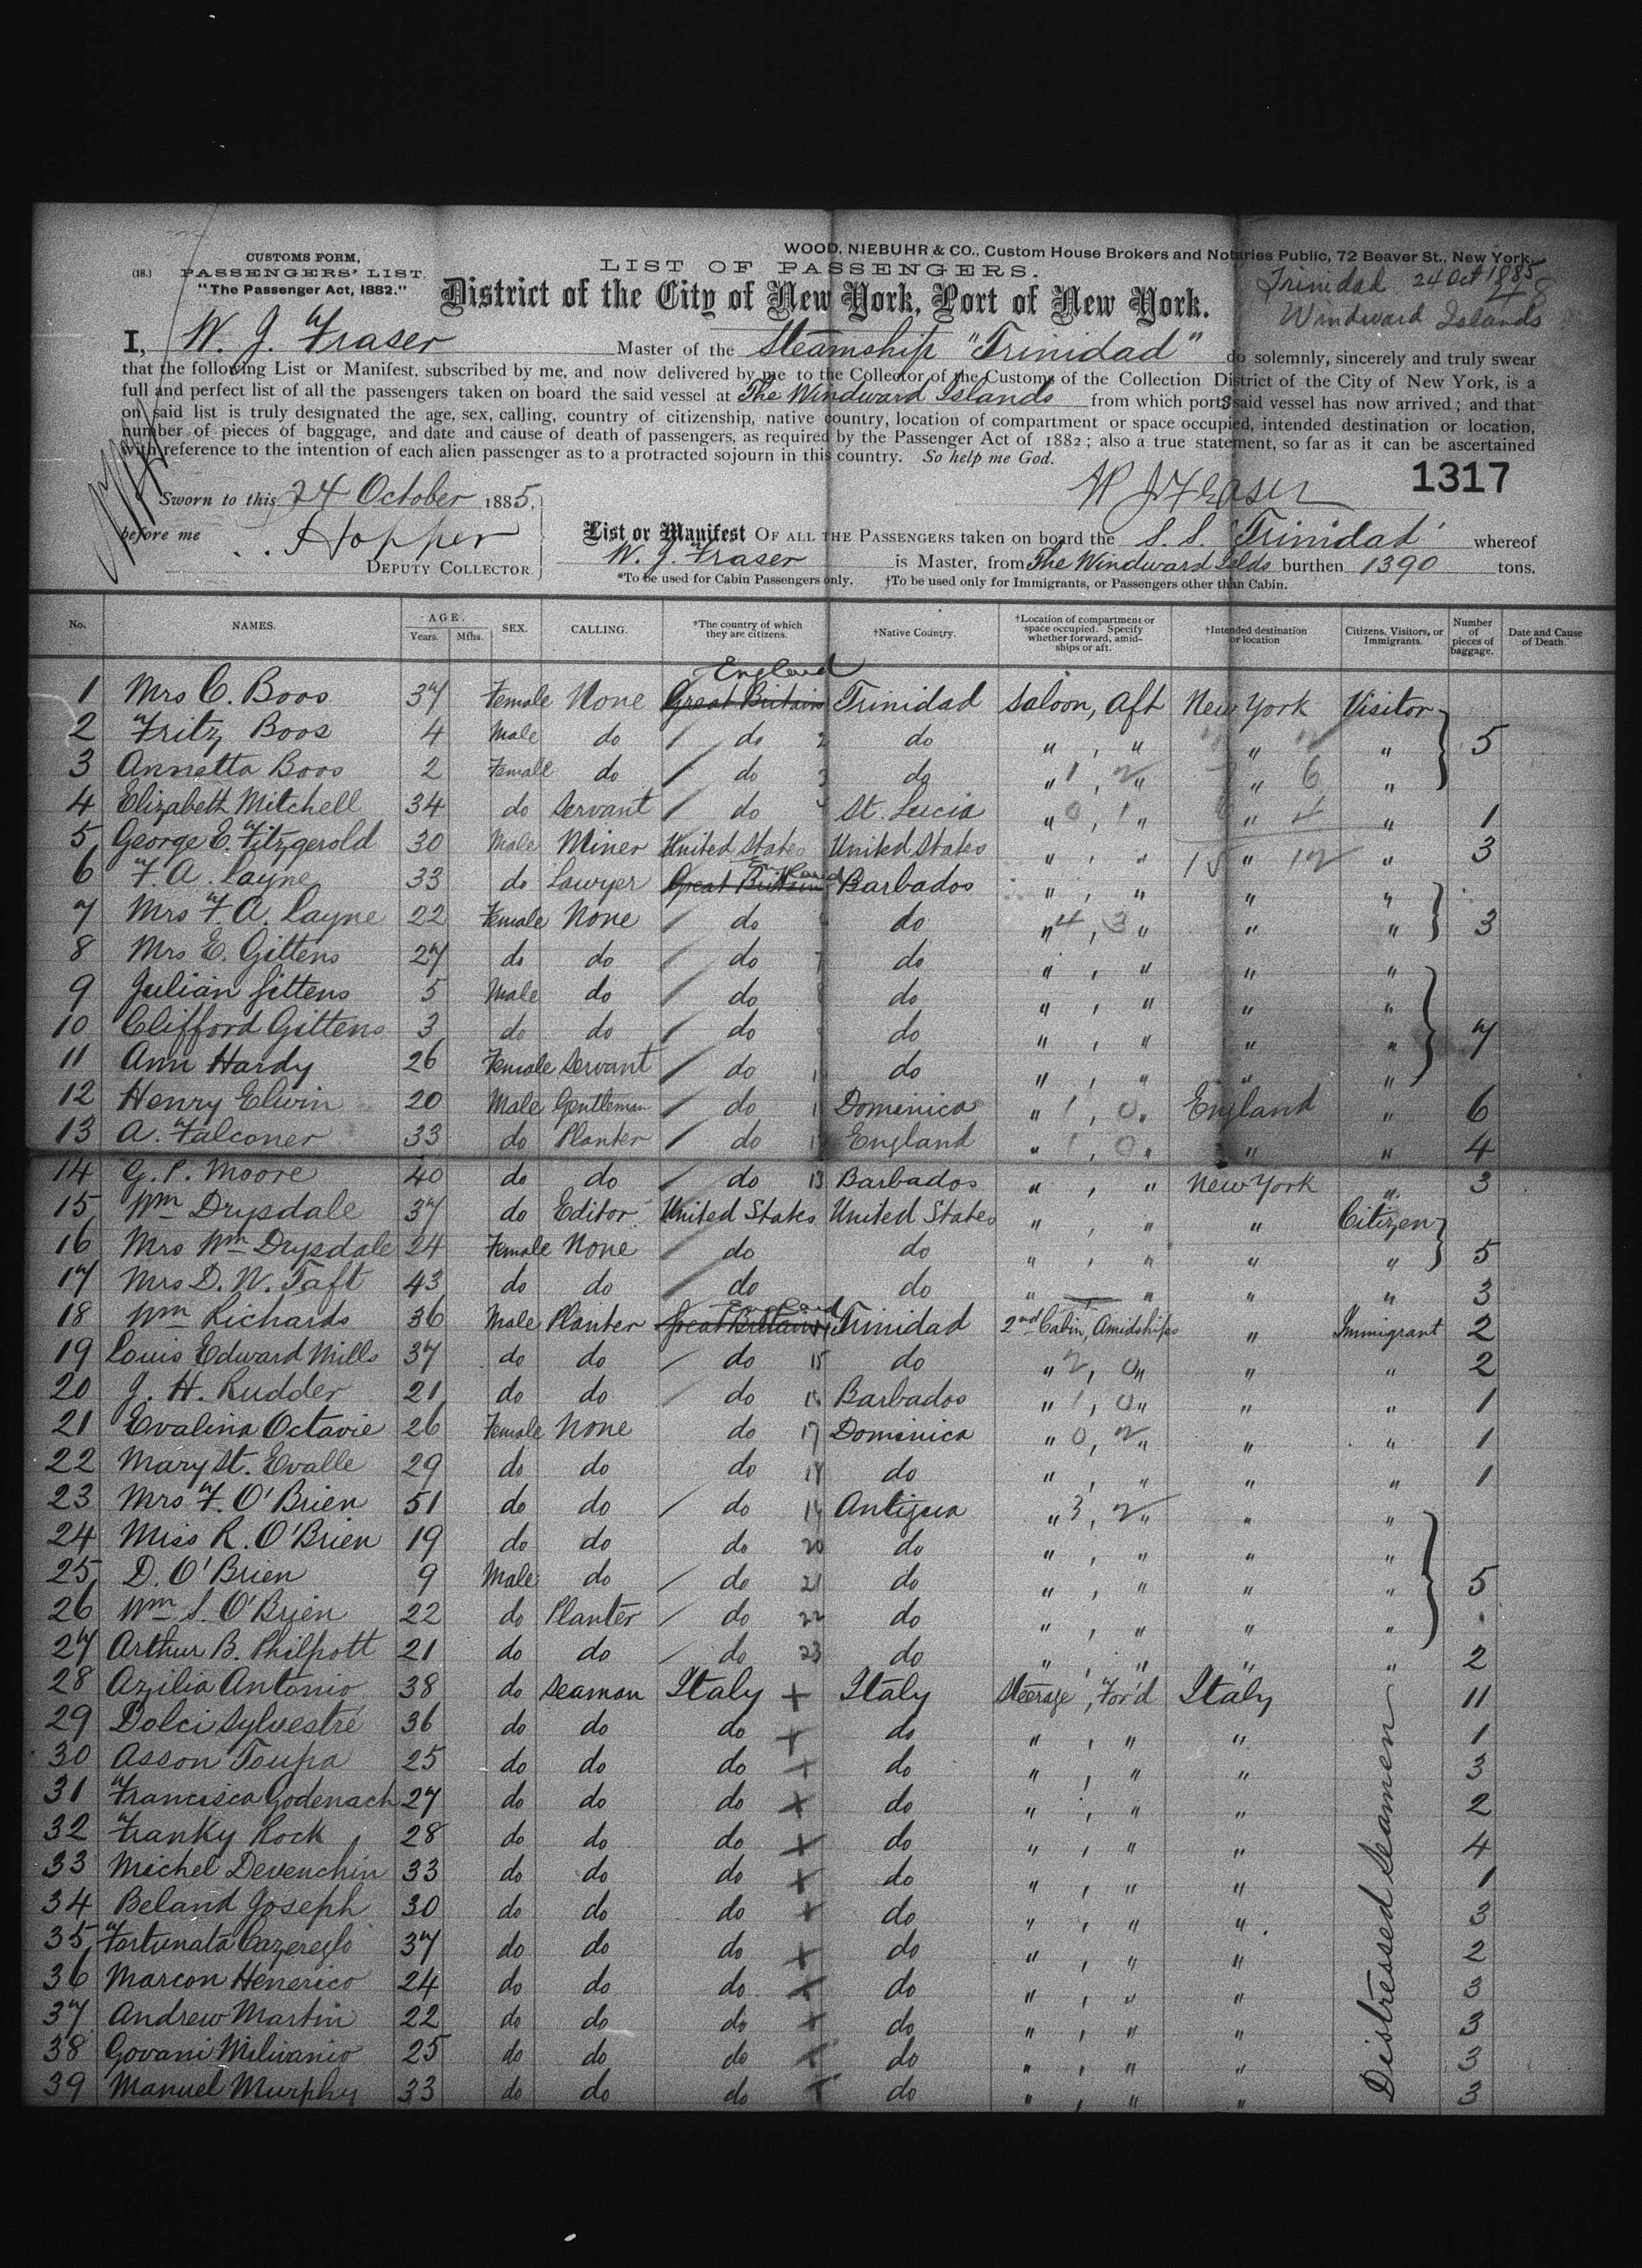 WOOD, NIEBUHR & CO., Custom House Brokers and Notaries Public, 72 Beaver St., New York.
CUSTOMS FORM,
(18.) PASSENGERS' LIST.
"The Passenger Act, 1882."
LIST OF PASSENGERS.
District of the City of New York, Port of New York.
Trinidad 24 Oct 1885
Windward Islands
I, W. J. Fraser Master of the Steamship "Trinidad" do solemnly, sincerely and truly swear
that the following List or Manifest, subscribed by me, and now delivered by me to the Collector of the Customs of the Collection District of the City of New York, is a
full and perfect list of all the passengers taken on board the said vessel at The Windward Islands from which ports said vessel has now arrived; and that
on said list is truly designated the age, sex, calling, country of citizenship, native country, location of compartment or space occupied, intended destination or location,
number of pieces of baggage, and date and cause of death of passengers, as required by the Passenger Act of 1882; also a true statement, so far as it can be ascertained
with reference to the intention of each alien passenger as to a protracted sojourn in this country. So help me God.
W J Fraser 1317
Sworn to this 24 October 1885,
before me Hopper
DEPUTY COLLECTOR
List or Manifest OF ALL THE PASSENGERS taken on board the S. S. Trinidad whereof
W. J. Fraser is Master, from The Windward Islds burthen 1390 tons.
*To be used for Cabin Passengers only. †To be used only for Immigrants, or Passengers other than Cabin.
No. NAMES. AGE. Years. Mths. SEX. CALLING. *The country of which they are citizens. †Native Country. †Location of compartment or space occupied. Specify whether forward, amidships or aft. †Intended destination or location Citizens, Visitors, or Immigrants. Number of pieces of baggage. Date and Cause of Death.
England
1 Mrs C. Boos 37 Female None Great Britain Trinidad Saloon, Aft New York Visitor
2 Fritz Boos 4 Male do do do " , " " " 5
3 Annetta Boos 2 Female do do do " , " " "
4 Elizabeth Mitchell 34 do Servant do St. Lucia " , " " " 1
5 George E. Fitzgerold 30 Male Miner United States United States " , " " " 3
England
6 F. A. Layne 33 do Lawyer Great Britain Barbados " , " " "
7 Mrs F. A. Layne 22 Female None do do " , " " " 3
8 Mrs E. Gittens 27 do do do do " , " " "
9 Julian Gittens 5 Male do do do " , " " "
10 Clifford Gittens 3 do do do do " , " " " 7
11 Ann Hardy 26 Female Servant do do " , " " "
12 Henry Elwin 20 Male Gentleman do Dominica " , " England " 6
13 A. Falconer 33 do Planter do England " , " " " 4
14 G. P. Moore 40 do do do 13 Barbados " , " New York " 3
15 Wm Drysdale 37 do Editor United States United States " , " " Citizen
16 Mrs Wm Drysdale 24 Female None do do " , " " " 5
17 Mrs D. W. Taft 43 do do do do " " " " 3
England
18 Wm Richards 36 Male Planter Great Britain Trinidad 2nd Cabin, Amidships " Immigrant 2
19 Louis Edward Mills 37 do do do 15 do " , " " " 2
20 J. H. Rudder 21 do do do Barbados " , " " " 1
21 Evalina Octavie 26 Female None do 17 Dominica " , " " " 1
22 Mary St. Evalle 29 do do do do " , " " " 1
23 Mrs F. O'Brien 51 do do do Antigua " , " " "
24 Miss R. O'Brien 19 do do do 20 do " , " " "
25 D. O'Brien 9 Male do do 21 do " , " " " 5
26 Wm S. O'Brien 22 do Planter do 22 do " , " " "
27 Arthur B. Philpott 21 do do do 23 do " , " " " 2
28 Azilia Antonio 38 do Seaman Italy + Italy Steerage, For'd Italy 11
29 Dolci Sylvestre 36 do do do + do " , " " 1
30 Asson Toupa 25 do do do + do " , " " 3
31 Francisca Godenach 27 do do do + do " , " " 2
32 Franky Rock 28 do do do + do " , " " 4
33 Michel Devenchin 33 do do do + do " , " " 1
34 Beland Joseph 30 do do do + do " , " " 3
35 Fortunata 37 do do do + do " , " " 2
36 Marcon Henerico 24 do do do + do " , " " 3
37 Andrew Martin 22 do do do + do " , " " 3
38 Govani Milivanio 25 do do do + do " , " " 3
39 Manuel Murphy 33 do do do + do " , " " 3
Distressed Seamen